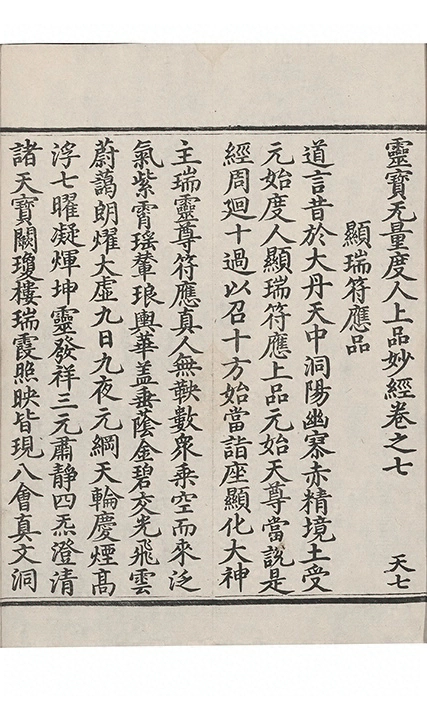 靈寶无量度人上品妙經卷之七
天七
顯瑞符應品
道言昔於大丹天中洞陽幽寥赤精境上受
元始度人顯瑞符應上品元始天尊當說是
經周廻十過以召十方始當詣座顯化大神
主瑞靈尊符應真人無鞅數衆乘空而來泛
氣紫霄瑶輦琅輿華盖垂蔭金碧交光飛雲
蔚藹朗燿大虛九日九夜元綱天輪慶煙高
浮七曜凝煇坤靈發祥三元肅靜四炁澄清
諸天寶闕瓊樓瑞霞照映皆現八會真文洞